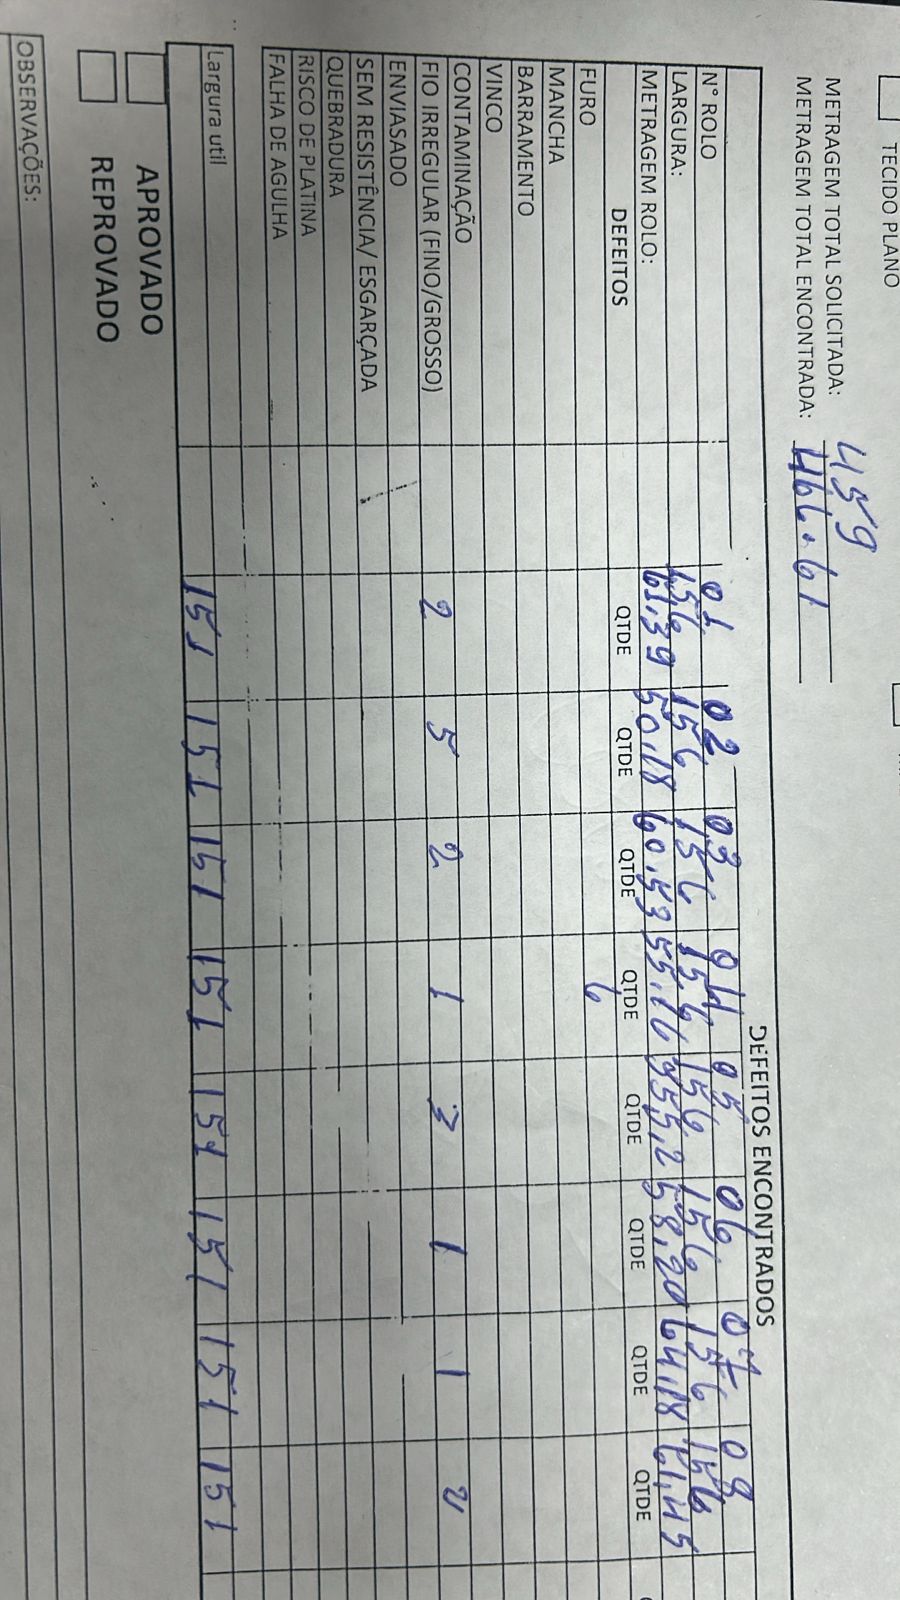 TECIDO PLANO
METRAGEM TOTAL SOLICITADA: 459
METRAGEM TOTAL ENCONTRADA: 466.61
DEFEITOS ENCONTRADOS
N° ROLO 01 02 03 04 05 06 07 08
LARGURA: 156 156 156 156 156 156 156 156
METRAGEM ROLO: 61,39 50,18 60,53 55,16 55,2 58,20 64,18 61,45
DEFEITOS QTDE QTDE QTDE QTDE QTDE QTDE QTDE QTDE
FURO 6
MANCHA
BARRAMENTO
VINCO
CONTAMINAÇÃO
FIO IRREGULAR (FINO/GROSSO) 2 5 2 1 3 1 1 2
ENVIASADO
SEM RESISTÊNCIA/ ESGARÇADA
QUEBRADURA
RISCO DE PLATINA
FALHA DE AGULHA
Largura util 151 151 151 151 151 151 151 151
APROVADO
REPROVADO
OBSERVAÇÕES: